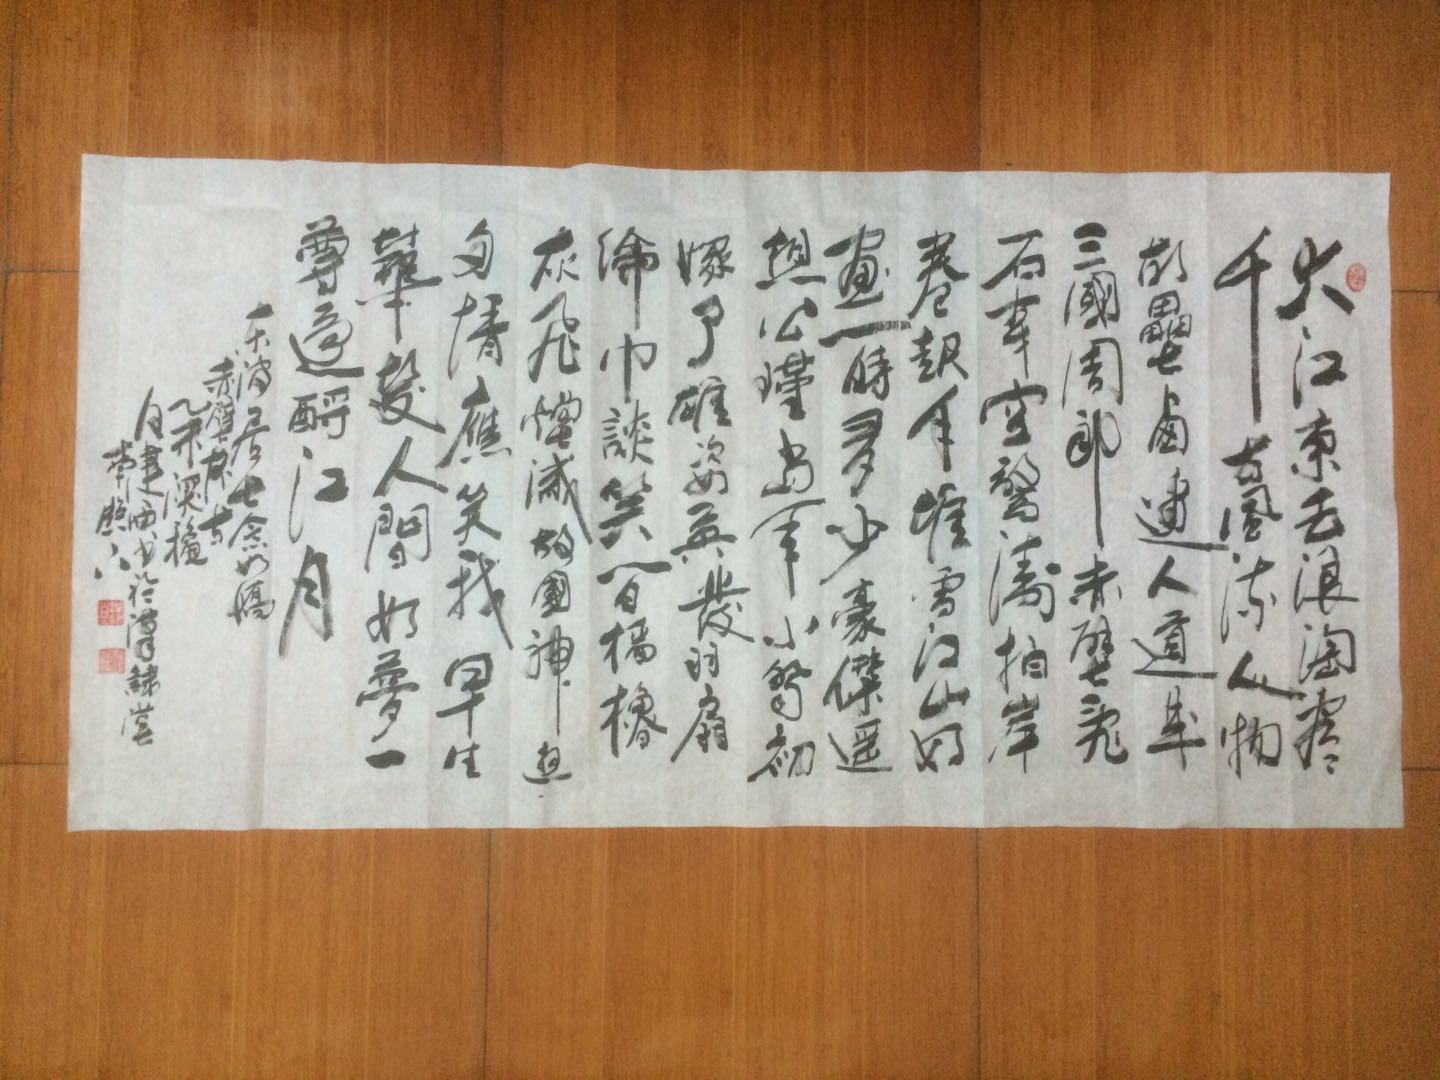 大江東去浪淘盡
千古風流人物
故壘西邊人道是
三國周郎赤壁亂
石穿空驚濤拍岸
卷起千堆雪江山如
畫一時多少豪傑遥
想公瑾當年小喬初
嫁了雄姿英發羽扇
綸巾談笑間檣櫓
灰飛煙滅故國神遊
多情應笑我早生
華髮人間如夢一
尊還酹江月
東坡居士念奴嬌
赤壁懷古
乙未
月建酉書於